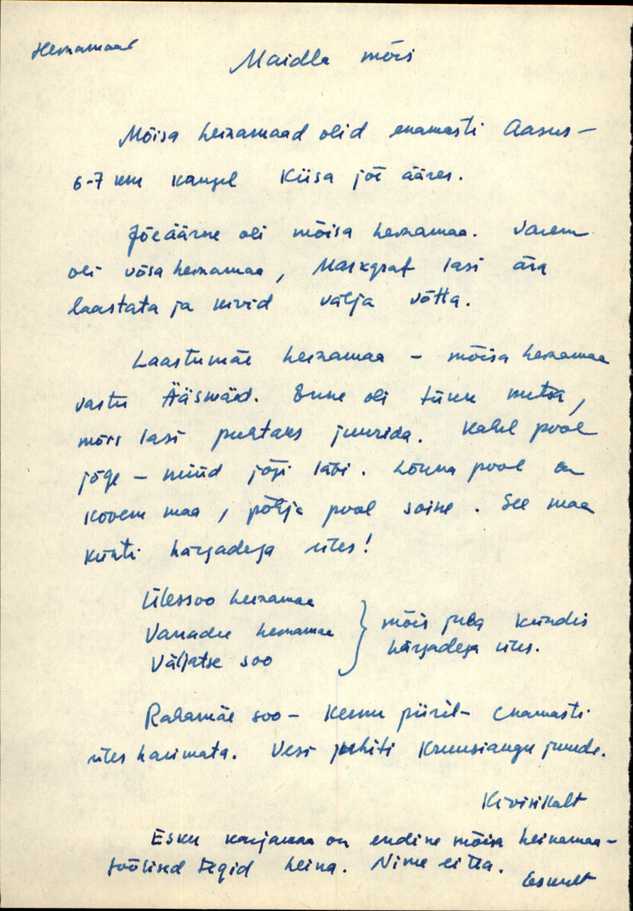 Heinamaad
Maidla mõis
Mõisa heinamaad olid enamasti Aasus-
6-7 km kaugel Kiisa jõe ääres.
Jõeäärne oli mõisa heinamaa. Varem
oli võsa heinamaa, Markgraf lasi ära
laastata ja kivid välja võtta.
Laastumäe heinamaa - mõisa heinamaa
vastu Ääsmäed. Enne oli tükk metsa,
mõis lasi puhtaks juurida. Kahel pool
jõge - nüüd jõgi läbi. Lõuna pool on
kõvem maa, põhja pool soine. See maa
künti härgadega üles!
Ülessoo heinamaa
Vanadu heinamaa } mõis juba kündis
Väljatse soo härgadega üles.
Rahamäe soo - Kernu piiril - enamasti
üles harimata. Vesi juhiti Kruusiaugu juurde.
Kivisikalt
Esku karjamaa on endine mõisa heinamaa-
töölised tegid heina. Nime ei tea.